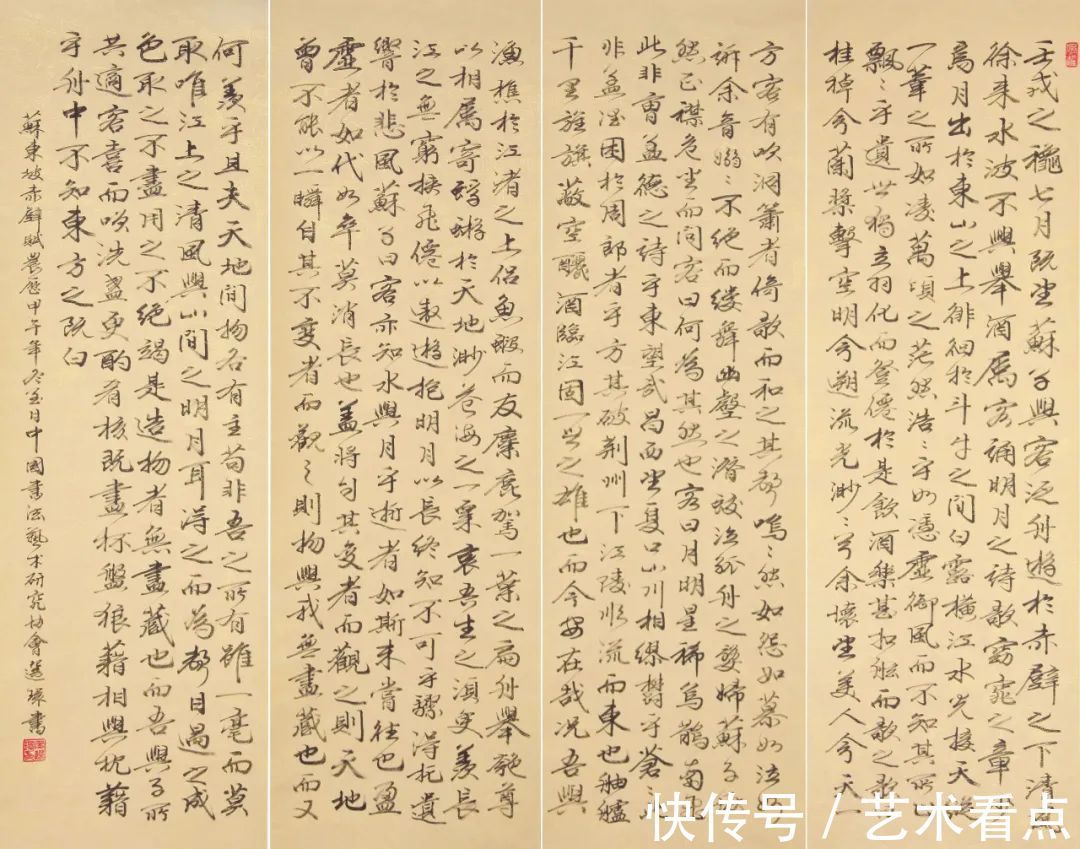 壬戌之穐七月既望蘇子與客泛舟遊於赤壁之下清風
徐来水波不興舉酒属客誦明月之诗歌窈窕之章少
焉月出於東山之上徘徊於斗牛之间白露横江水光接天縱
一葦之所如凌萬頃之茫然浩〻乎如憑虚御風而不知其所止
飄〻乎遺世獨立羽化而登僊於是飲酒樂甚扣舷而歌之歌曰
桂棹兮蘭槳擊空明兮溯流光渺〻兮余懷望美人兮天一
方客有吹洞簫者倚歌而和之其聲嗚〻然如怨如慕如泣如
訴余音嫋〻不绝而缕舞幽壑之潜蛟泣孤舟之嫠婦蘇子愀
然正襟危坐而问客曰何為其然也客曰月明星稀烏鵲南飛
此非曹孟德之诗乎東望武昌西望夏口山川相缪鬱乎蒼〻此
非孟德困於周郎者乎方其破荆州下江陵順流而東也舳艫
千里旌旗蔽空釃酒臨江固一世之雄也而今安在哉况吾與
漁樵於江渚之上侣魚蝦而友麋鹿駕一葉之扁舟舉匏尊
以相属寄蜉蝣於天地渺蒼海之一粟哀吾生之須臾羨長
江之無窮挾飛僊以遨遊抱明月以長终知不可乎驟得托遺
響於悲風蘇子曰客亦知水與月乎逝者如斯未嘗往也盈
虚者如代如卒莫消長也盖將自其变者而觀之则天地
曾不能以一瞬自其不变者而觀〻则物與我無盡藏也而又
何羨乎且夫天地間物各有主苟非吾之所有雖一毫而莫
取唯江上之清風與山间之明月耳得之而為聲目遇之成
色取之不盡用之不绝竭是造物者無盡藏也而吾與子所
共適客喜而笑洗盏更酌肴核既盡杯盤狼藉相與枕藉
乎舟中不知東方之既白
蘇東坡赤壁賦農歷甲午年冬至日中國書法藝术研究协會書
快传号 / 艺术看点